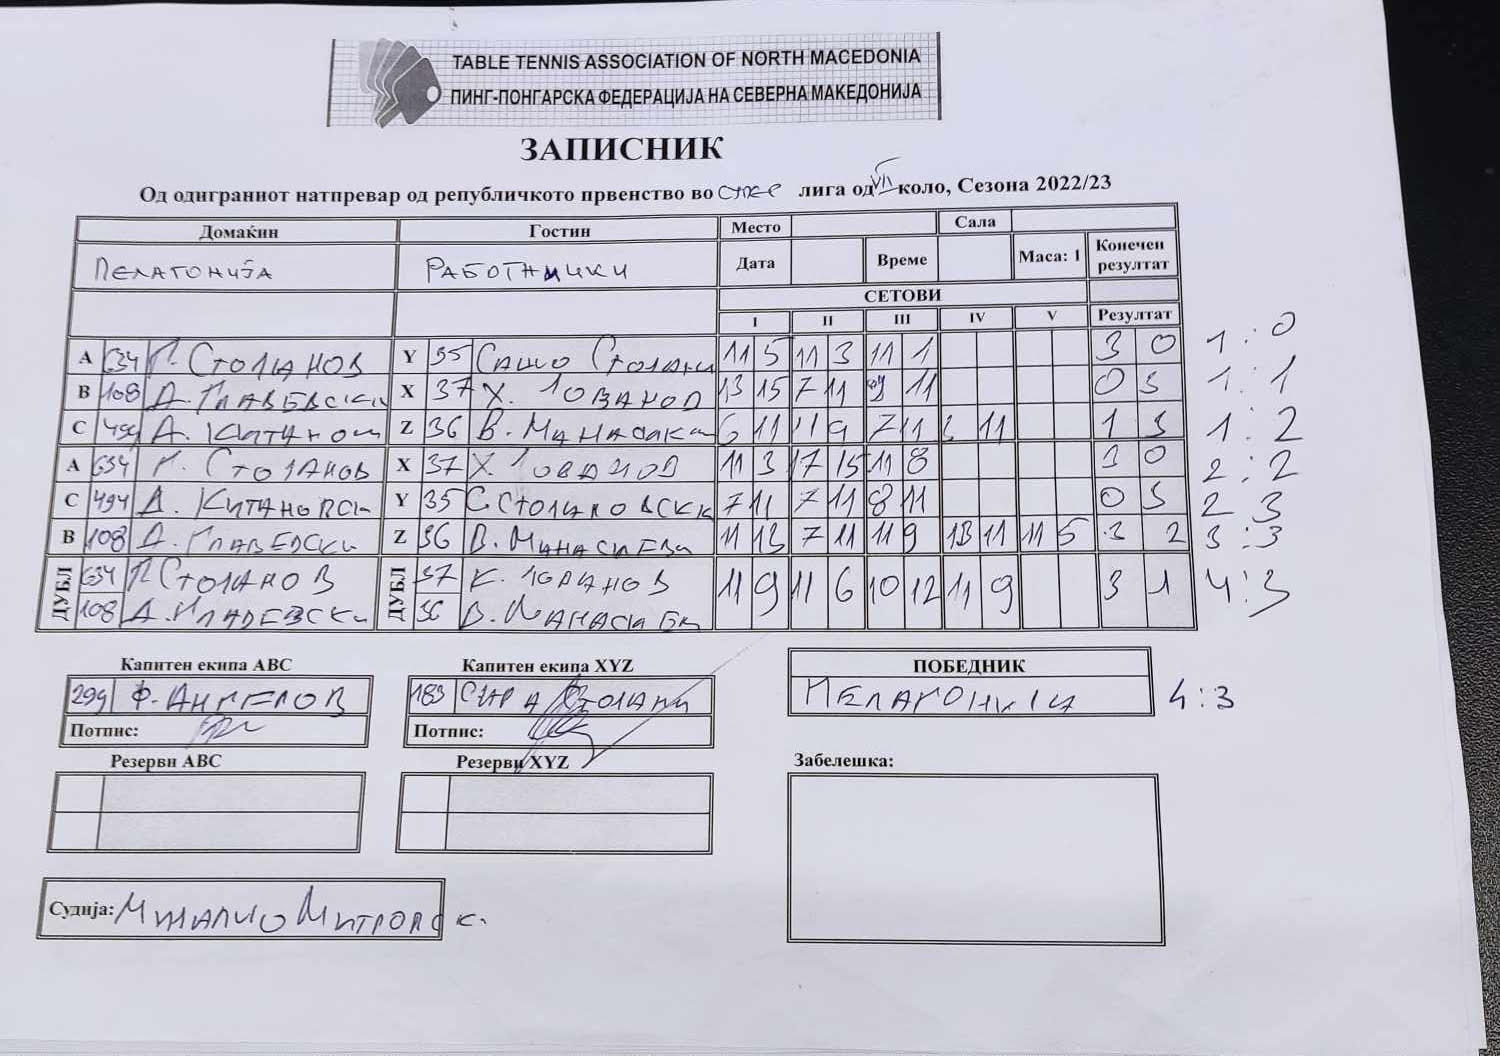 TABLE TENNIS ASSOCIATION OF NORTH MACEDONIA
ПИНГ-ПОНГАРСКА ФЕДЕРАЦИЈА НА СЕВЕРНА МАКЕДОНИЈА
ЗАПИСНИК
Од одиграниот натпревар од републичкото првенство во лига од VII коло, Сезона 2022/23
Домаќин Гостин Место Сала
ПЕЛАГОНИЈА РАБОТНИЧКИ Дата Време Маса: 1 Конечен резултат
СЕТОВИ
I II III IV V Резултат
A 634 П. СТОЈАНОВ Y 35 САШО 11 5 11 3 11 1 3 0 1:0
B 108 Д. ГЛАВЕВСКИ X 37 Х. ЈОВАНОВ 13 15 7 11 9 11 0 3 1:1
C 494 Z 36 В. 6 11 11 9 7 11 3 11 1 3 1:2
A 634 П. СТОЈАНОВ X 37 Х. ЈОВАНОВ 11 3 17 15 11 8 3 0 2:2
C 494 Д. КИТАНОВСКИ Y 35 С. СТОЈАНОВСКИ 7 11 7 11 8 11 0 3 2 3
B 108 Д. ГЛАВЕВСКИ Z 36 В. 11 13 7 11 11 9 13 11 11 5 3 2 3:3
ДУБЛ 634 П СТОЈАНОВ ДУБЛ 37 ЈОВАНОВ 11 9 11 6 10 12 11 9 3 1 4:3
108 Д. ГЛАВЕВСКИ 36 В.
Капитен екипа ABC Капитен екипа XYZ ПОБЕДНИК
299 Ф. АНГЕЛОВ 183 ПЕЛАГОНИЈА 4:3
Потпис: Потпис:
Резерви ABC Резерви XYZ Забелешка:
Судија: